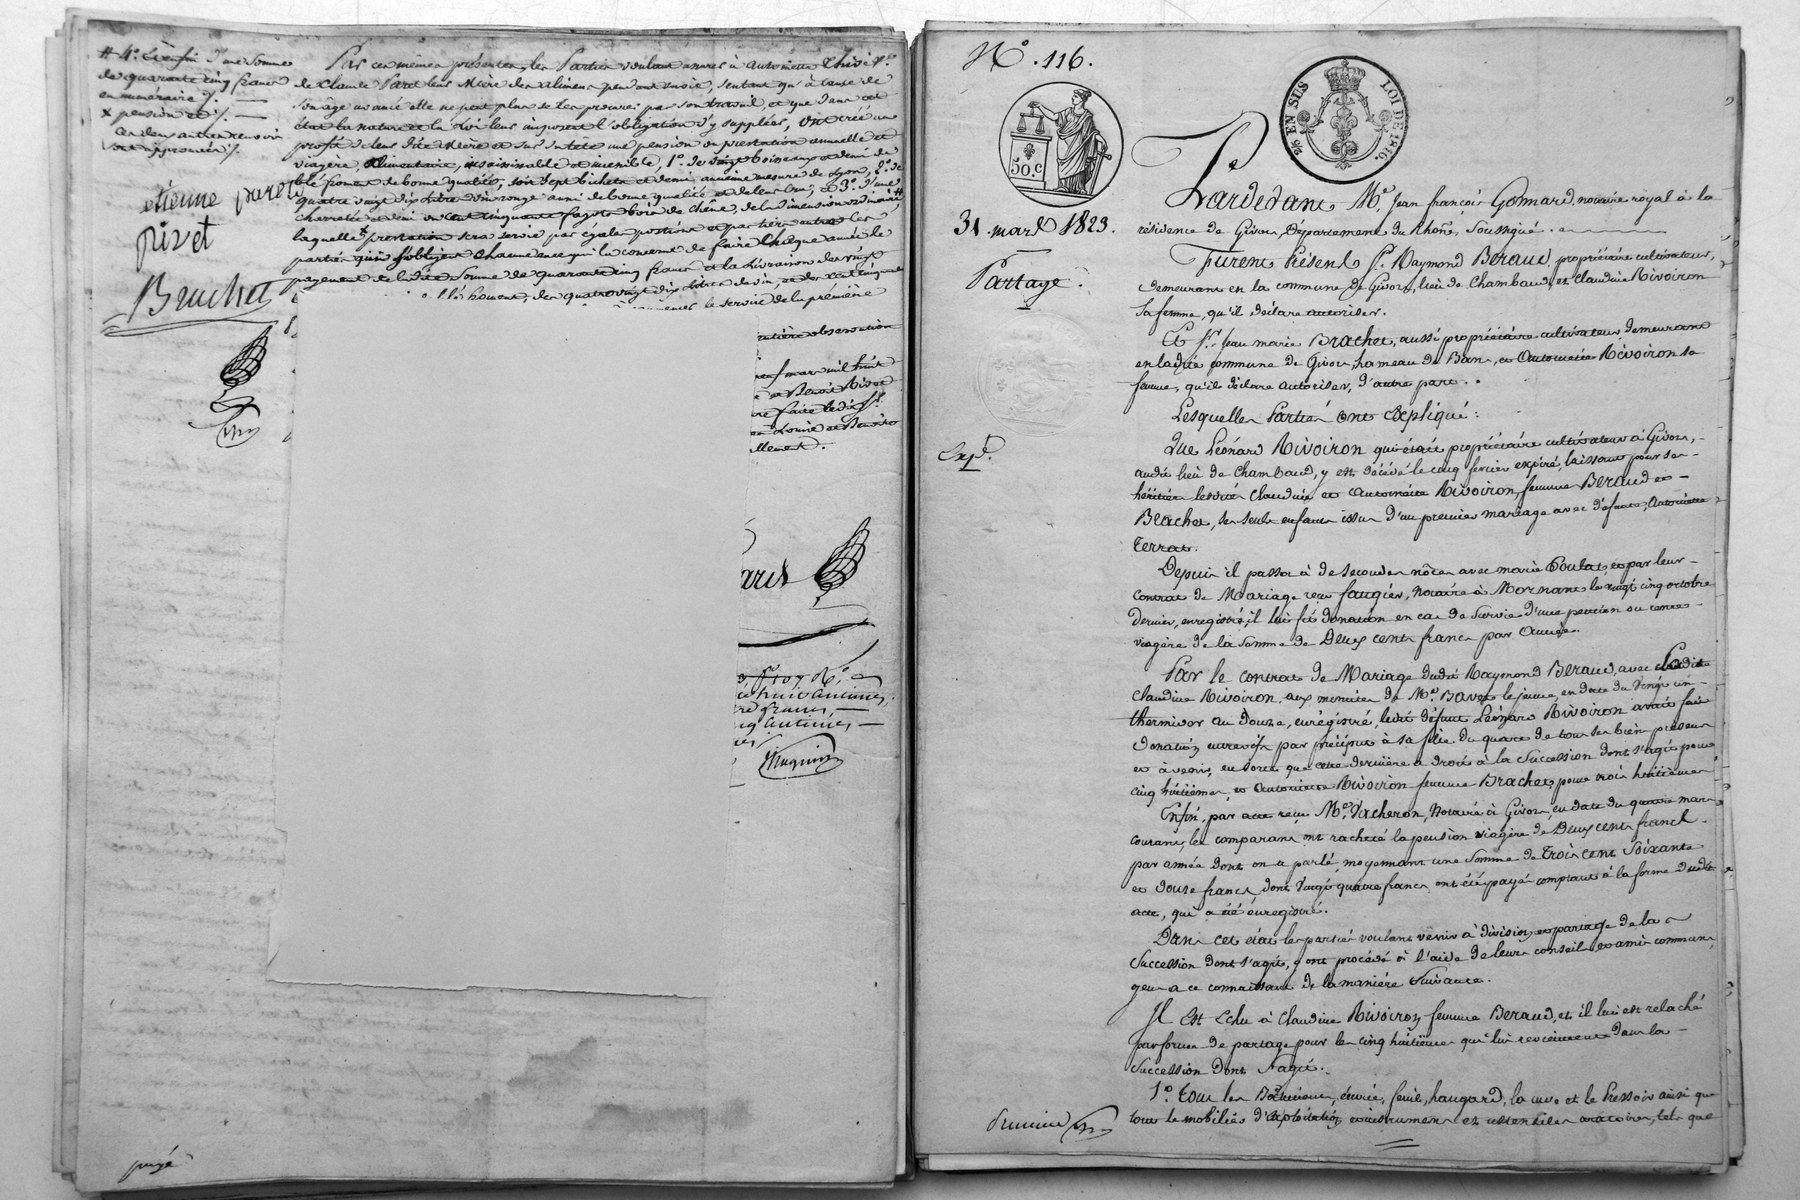 # 4.° Et enfin d'une Somme
de quarante cinq francs
en numéraire /.
x pension et /.
Ces deux autres renvois
sont approuvés /.
etienne paret
pivet
Bruchet
Par ces mêmes présentes, les Parties voulant assurer à Antoinette v.e
de Claude Paret leur Mère des alimens pendant sa vie, sentant qu'à cause de
son âge avancé elle ne peut plus se les procurer par son travail et que dans cet
état la nature et la Loi leur imposent l'obligation d'y suppléer, ont créé au
profit de leur dite Mère et sur sa tête une pension ou prestation annuelle et
viagère, alimentaire, insaisissable et incessible, 1.° de boisseaux et demi de
blé froment de bonne qualité, soit sept bichets et demi ancienne mesure de Lyon, 2.° de
quatre vingt dix litres vin rouge aussi de bonne qualité et de leur cru, et 3.° d'une
charretée et demi ou cent cinquante fagots bois de chêne, de la dimension ordinaire #
laquelle x prestation sera servie par égales portions et par tiers entre les
parties qui s'obligent chacune en ce qui la concerne de faire chaque année le
payement de la dite Somme de quarante cinq francs et la livraison des sept
froment, des quatre vingt dix litres de vin, et des cent cinquante
le service de la première
observation
mars mil huit
et Benoit
faite led. S.r
Louis et Benoit
llement.
aret
f.° 107 R.°
huit centimes,
francs,
centimes,
payé
N.° 116.
50. C
25 EN SUS LOI DE 1816.
31 mars 1823.
Partage.
Exp.é
Pardevant M.e Jean françois Gonnard, notaire royal à la
résidence de Givors, Département du Rhône, Soussigné.
Furent Présens S.r Raymond Beraud, propriétaire cultivateur,
demeurant en la commune de Givors, lieu de Chambaud, et Claudine Rivoiron
sa femme, qu'il déclare autoriser.
Et S.r Jean marie Brachet, aussi propriétaire cultivateur demeurant
en ladite commune de Givors, hameau de Bans, et Antoinette Rivoiron sa
femme, qu'il déclare autoriser, d'autre part.
Lesquelles Parties ont expliqué :
Que Léonard Rivoiron qui était propriétaire cultivateur à Givors,
audit lieu de Chambaud, y est décédé le cinq février expiré, laissant pour ses
héritières lesdites Claudine et Antoinette Rivoiron, femmes Beraud et
Brachet, ses seuls enfans issus d'un premier mariage avec défunte Antoinette
Terrat.
Depuis il passa à de secondes nôces avec marie Poulat, et par leur
contrat de Mariage reçu faugier, Notaire à Mornant le vingt cinq octobre
dernier, enregistré, il lui fit donation en cas de survie d'une pension ou rente
viagère de la somme de Deux cents francs par année.
Par le contrat de Mariage dudit Raymond Beraud avec ladite
Claudine Rivoiron, aux minutes de M.e Bavet le jeune, en date du vingt un
thermidor an douze, enrégistré, ledit défunt Léonard Rivoiron avait fait
donation entrevifs par préciput à sa fille du quart de tous ses biens présens
et à venir, en sorte que cette dernière a droit à la succession dont s'agit pour
cinq huitièmes, et Antoinette Rivoiron femme Brachet, pour trois huitièmes.
Enfin, par acte reçu M.e Vacheron, Notaire à Givors, en date du quatre mars
courant, les comparans ont racheté la pension viagère de Deux cents francs
par année dont on a parlé, moyennant une somme de Trois cent soixante
et douze francs, dont vingt quatre francs ont été payés comptant à la forme dudit
acte, qui a été enregistré.
Dans cet état les parties voulant venir à division et partage de la
succession dont s'agit, y ont procédé à l'aide de leurs conseils et amis communs,
gens a ce connaissant de la manière suivante.
Il Est Echu à Claudine Rivoiron femme Beraud, et il lui est relaché
par forme de partage pour les cinq huitièmes qui lui reviennent dans la
succession dont s'agit.
1.° Tous les Bâtimens, écurie, fenil, hangard, la cuve et le Pressoir ainsi que
tout le mobilier d'exploitation, instrumens et ustensiles aratoires, tels que